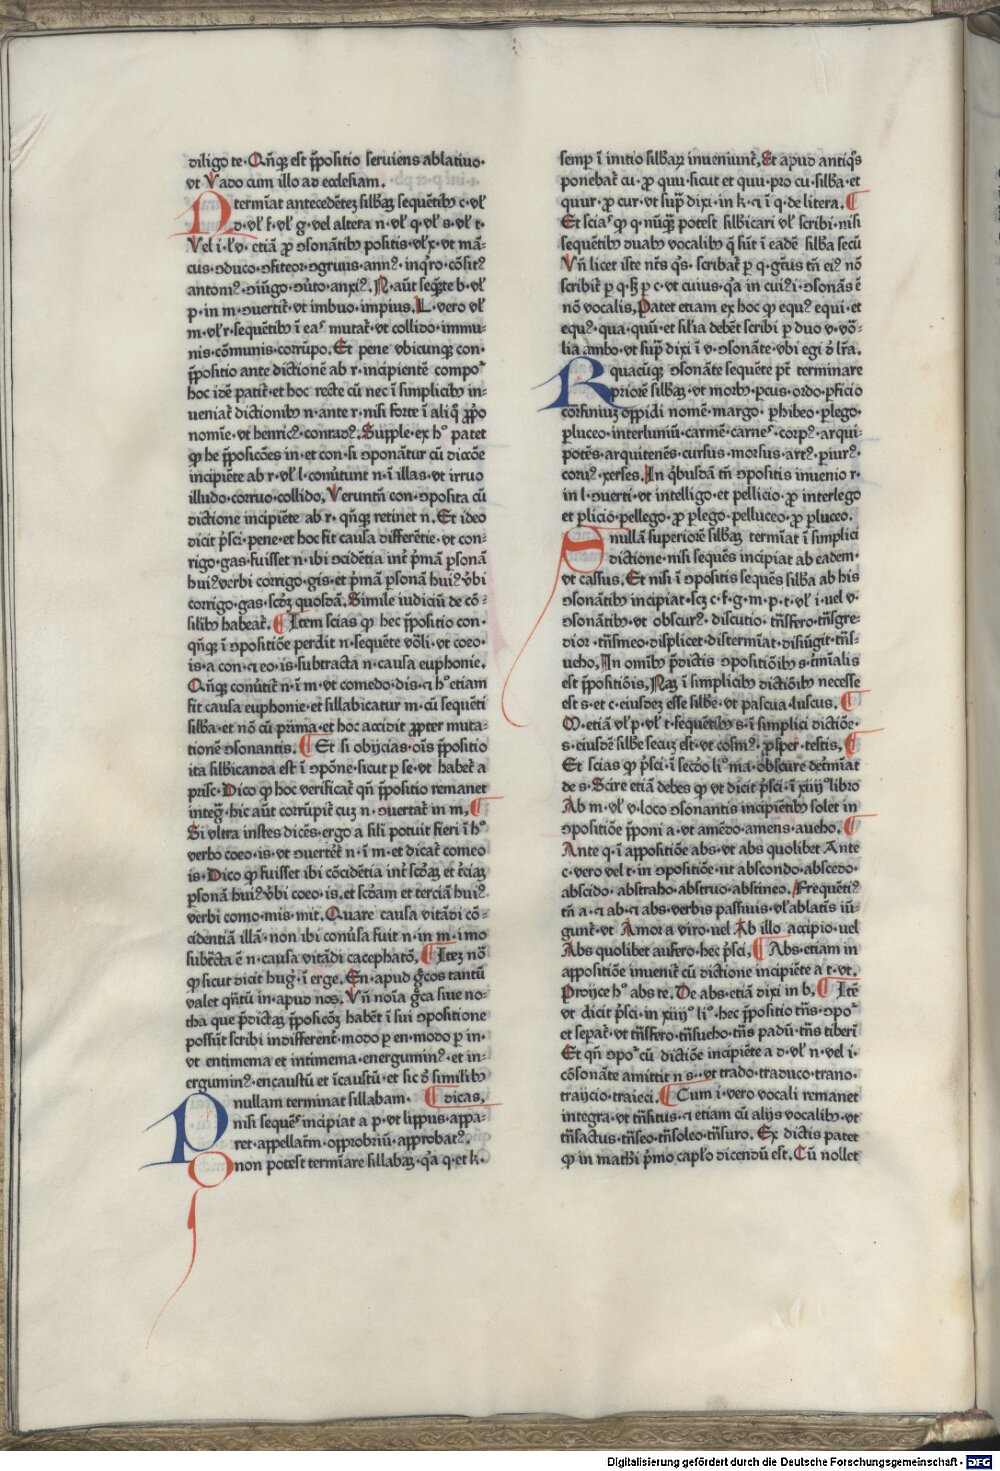 diligo te· Qn̄qꝫ est p̄positio seruiens ablatiuo·
vt Vado cum illo ad ecclesiam.
N termīat antecedētez silbaꝫ sequētibꝰ c· vl̓
d· vl̓ f· vl̓ g· vel altera n· vl̓ q· vl̓ s· vl̓ t·
Vel i· l̓ v· etiā ꝓ ꝯsonātibꝰ positis· vl̓ x· vt mā-
cus· ꝯduco· ꝯfiteor· ꝯgruus· annꝰ· inq̓ro· cōsitꝰ
antoniꝰ· ꝯiūgo· ꝯuto· anxiꝰ. N· aūt seq̄te b· vl̓
p· in m· ꝯuertit᷑· vt imbuo· impius. L· vero vl̓
m· vl̓ r· sequētibꝰ ī eas mutat᷑· vt collido· immu-
nis· cōmunis· corrūpo. Et pene vbicunqꝫ con·
p̄positio ante dictionē ab r· incipientē compoʳ
hoc idē patit᷑· et hoc recte cū nec ī simplicibꝰ in-
ueniat᷑ dictionibꝰ n· ante r· nisi forte ī aliq̄ ꝓpo
nomīe· vt henricꝰ· conradꝰ. Supple· ex hº patet
ꝙ he p̄posicōes in· et con· si ꝯponātur cū diccōe
incipiēte ab r· vl̓ l· conūtunt n· ī illas· vt irruo
illudo· corruo· collido. Veruntn̄ con· ꝯposita cū
dictione incipiēte ab r· qn̄qꝫ retinet n. Et ideo
dicit p̓sci· pene· et hoc fit causa differētie· vt con-
rigo· gas· fuisset n· ibi ꝯcidētia int᷑ p̓mā ꝑsonā
huiꝰ verbi corrigo· gis· et p̓mā ꝑsonā huiꝰ v̓bi
corrigo· gas· scd̄ꝫ quosdā. Simile iudiciū de cō-
silibꝰ habeat᷑. ¶ Item scias ꝙ hec p̄positio con·
qn̄qꝫ ī ꝯpositiōe perdit n· sequēte vōli· vt coeo·
is· a con· ⁊ eo· is· subtracta n· causa euphonie.
Qn̄qꝫ conūtit᷑ n· ī m· vt comedo· dis· ⁊ hº etiam
fit causa euphonie· et sillabicatur m· cū sequēti
silba· et nō cū prima· et hoc accidit ꝓpter muta-
tionē ꝯsonantis. ¶ Et si obijcias· oīs p̄positio
ita silbicanda est ī ꝯpōne· sicut ꝑ se· vt habet᷑ a
prisc· Dico ꝙ hoc verificat᷑ qn̄ p̄positio remanet
inteḡ· hic aūt corrūpit᷑ cuꝫ n· ꝯuertat᷑ in m. ¶
Si vltra instes dicēs· ergo a sili potuit fieri ī hº
verbo coeo· is· vt ꝯuertet᷑ n· ī m· et dicat᷑ comeo
is· Dico ꝙ fuisset ibi cōcidētia int᷑ scd̄aꝫ et t̓ciaꝫ
ꝑsonā huiꝰ v̓bi coeo· is· et scd̄am et terciā huiꝰ
verbi como· mis· mit. Quare causa vitādi cō-
cidentiā illā· non ibi conūsa fuit n· in m· imo
subt̓cta ē n· causa vitādi cacephatō. ¶ Iteꝫ nō
ꝙ sicut dicit hug̓· ī erge. En· apud g̓cos tantū
valet qn̄tū in· apud nos. Vn̄ noīa g̓ca siue no-
tha que p̄dictaꝫ p̄posicōꝫ habēt ī sui ꝯpositione
possūt scribi indifferent᷑· modo ꝑ en· modo ꝑ in·
vt entimema et intimema· energuminꝰ· et in-
erguminꝰ· encaustū et īcaustū· et sic ꝯ̄ similibꝰ
P nullam terminat sillabam· ¶ dicas.
nisi sequēs incipiat a p· vt lippus· appa-
ret· appellat᷑m· opprobriū· approbatꝰ.
Q non potest termīare sillabaꝫ· q̓a q· et k·
semꝑ ī initio silbaꝝ inueniunt᷑. Et apud antiq̓s
ponebat᷑ cu· ꝓ quu· sicut et quu· pro cu· silba· et
quur· ꝓ cur· vt sup̄ dixi· in k· ⁊ ī q· de litera. ¶
Et sciaˢ ꝙ q· nūqꝫ potest silbicari vl̓ scribi· nisi
sequētibꝰ duabꝰ vocalibꝰ q̄ sūt ī eadē silba secū
Vn̄ licet iste nt̄s q̓s· scribat᷑ ꝑ q· gt̄us tn̄ eiꝰ nō
scribit᷑ ꝑ q· sꝫ ꝑ c· vt cuius· q̓a in cuiꝰ i· ꝯsonās ē
nō vocalis. Patet etiam ex hoc ꝙ equꝰ equi· et
equꝰ· qua· quū· et sil̓ia debēt scribi ꝑ duo v· vō-
lia ambo· vt sup̄ dixi ī v· ꝯsonāte· vbi egi ꝯ̄ lr̄a.
R quacūqꝫ ꝯsonāte sequēte pt̄ terminare
priorē silbaꝫ· vt morbꝰ· ꝑcus· ordo· ꝑficio
corfiniuꝫ oppidi nomē· margo· ꝑhibeo· ꝑlego·
ꝑluceo· interluniū· carmē· carneˢ· corpꝰ· arqui-
potēs· arquitenēs· cursus· morsus· artꝰ· ꝑiurꝰ·
coruꝰ· xerses. In q̓busdā tn̄ ꝯpositis inuenio r·
in l· ꝯuerti· vt intelligo· et pellicio· ꝓ interlego
et ꝑlicio· pellego· ꝓ ꝑlego· pelluceo· ꝓ ꝑluceo.
S nullā superiorē silbaꝫ termīat ī simplici
dictione· nisi sequēs incipiat ab eadem·
vt cassus. Et nisi ī ꝯpositis sequēs silba ab his
ꝯsonātibꝰ incipiat· scꝫ c· f· g· m· p· t· vl̓ i· uel v·
ꝯsonātibꝰ· vt obscurꝰ· discutio· tn̄sfero· tn̄sgre-
dior· tn̄smeo· displicet· distermīat· disiūgit· tn̄s-
ueho. In omībꝰ p̄dictis ꝯpositiōibꝰ s· t̓mīalis
est p̄positiōis. Naꝫ ī simplicibꝰ dictiōibꝰ necesse
est s· et c· eiusdeꝫ esse silbe· vt pascua· luscus. ¶
M· etiā vl̓ p· vl̓ t· sequētibꝰ s· ī simplici dictiōe·
s· eiusdē silbe secuꝫ est· vt cosmꝰ· ꝓsper· testis. ¶
Et scias ꝙ p̓sci· ī secd̄o liº ma· obscure det̓mīat
de s· Scire etiā debes ꝙ vt dicit p̓sci· ī xiiijº libro
Ab m· vl̓ v· loco ꝯsonantis incipiētibꝰ solet in
ꝯpositiōe p̄poni a· vt amēdo· amens· aueho. ¶
Ante q· ī appositiōe abs· vt abs quolibet Ante
c· vero vel t· in ꝯpositiōe· ut abscondo· abscedo·
abscido· abstraho· abstruo· abstineo. Frequētiꝰ
tn̄ a· ⁊ ab· ⁊ abs· verbis passiuis· vl̓ ablatīs iū-
gunt᷑· vt Amor a viro· uel Ab illo accipio· uel
Abs quolibet aufero· hec p̓sci. ¶ Abs· etiam in
appositiōe inuenit᷑ cū dictione incipiēte a t· vt·
Proijce hº abs te. De abs· etiā dixi in b. ¶ Itē
vt dicit p̓sci· in xiiijº liº· hec p̄positio tn̄s· ꝯpoʳ
et separat᷑· vt tn̄sfero· tn̄sueho· tn̄s padū· tn̄s tiberī
Et qn̄ ꝯpoʳ cū dictiōe incipiēte a d· vl̓ n· vel i·
cōsonāte amittit n s·· vt trado· traduco· trano·
traijcio· traieci. ¶ Cum i· vero vocali remanet
integra· vt tn̄situs· ⁊ etiam cū alijs vocalibꝰ· vt
tn̄sactus· tn̄seo· tn̄soleo· tn̄suro. Ex dictis patet
ꝙ in math̄i p̓mo cap̄l̓o dicendū est. Cū nollet
Digitalisierung gefördert durch die Deutsche Forschungsgemeinschaft - DFG